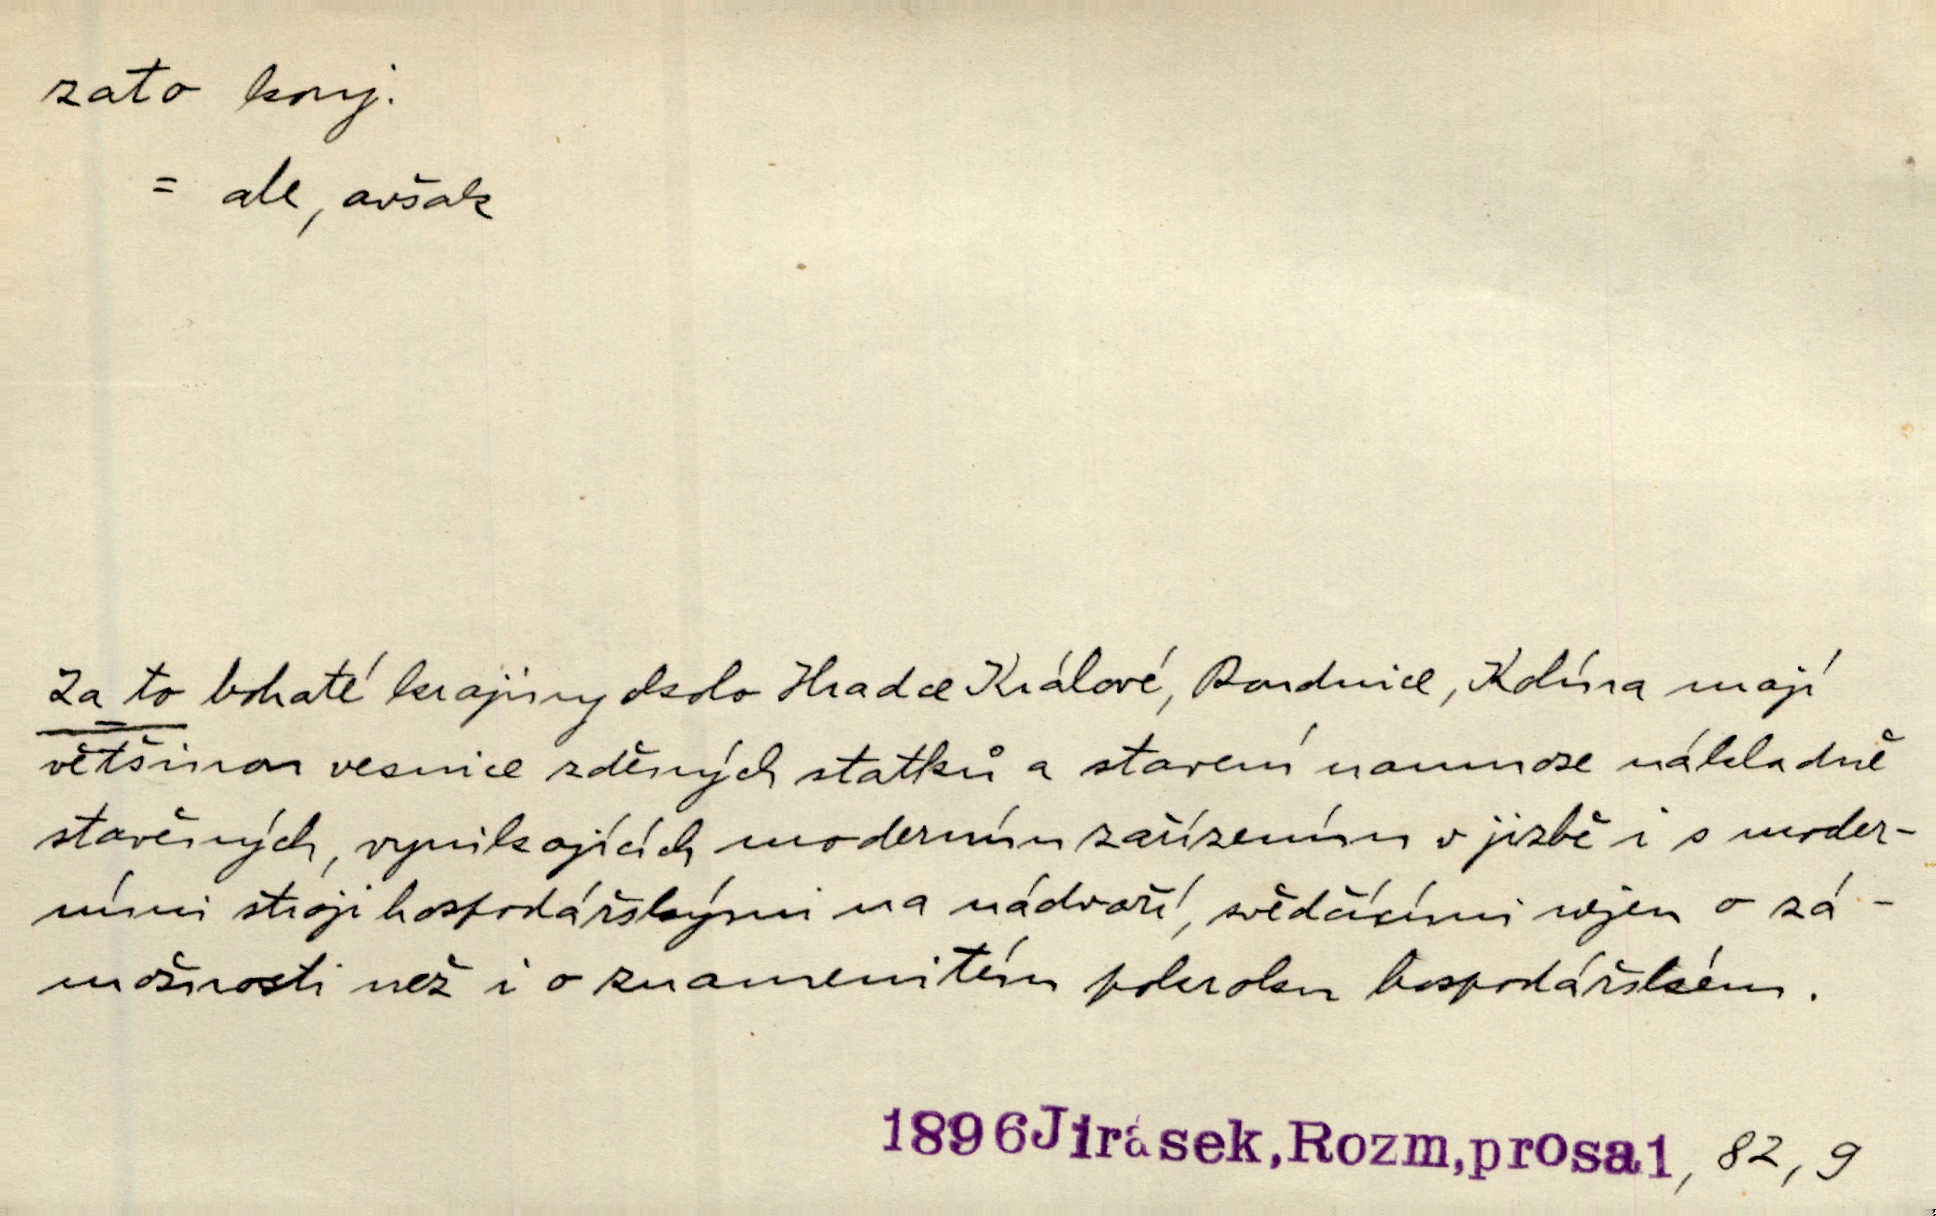 zato konj.
= ale, avšak
Za to bohaté krajiny okolo Hradce Králové, Roudnice, Kolína mají
většinou vesnice zděných statků a stavení namnoze nákladně
stavěných, vynikajících moderním zařízením v jizbě i s moder-
ními stroji hospodářskými na nádvoří, svědčícími nejen o zá-
možnosti než i o znamenitém pokroku hospodářském.
1896 Jirásek, Rozm, prosa1, 82, 9